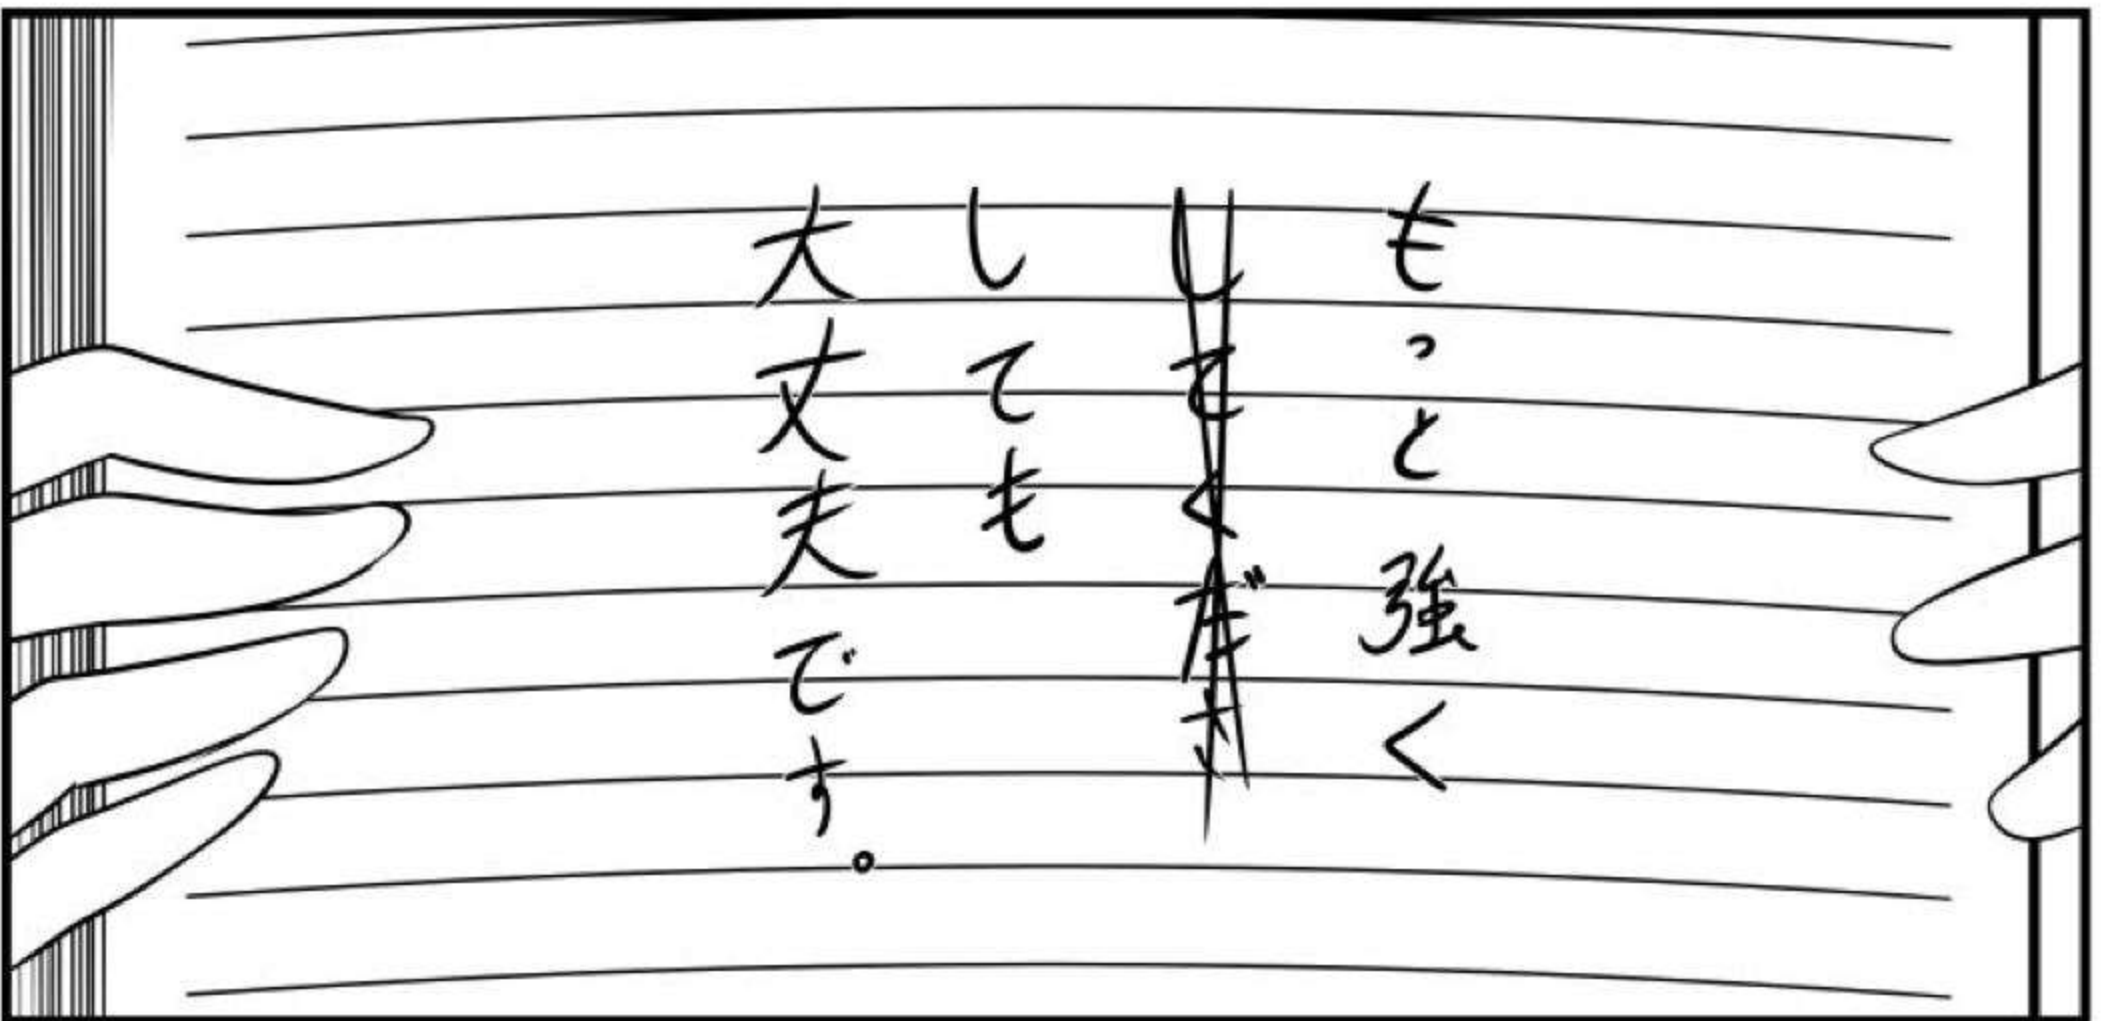 もっと強く
してください
しても
大丈夫です。